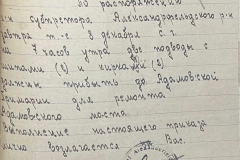 По распоряжению
субтректора Александрфельдского р-н
завтра т-е 8 декабря с.г.
на 7 часов утра две подводы с
(2) и кирками (2)
должны прибыть до Адамовской
для ремонта
Адамовского моста.
Выполнение настоящего приказа
лично возлагается на Вас.